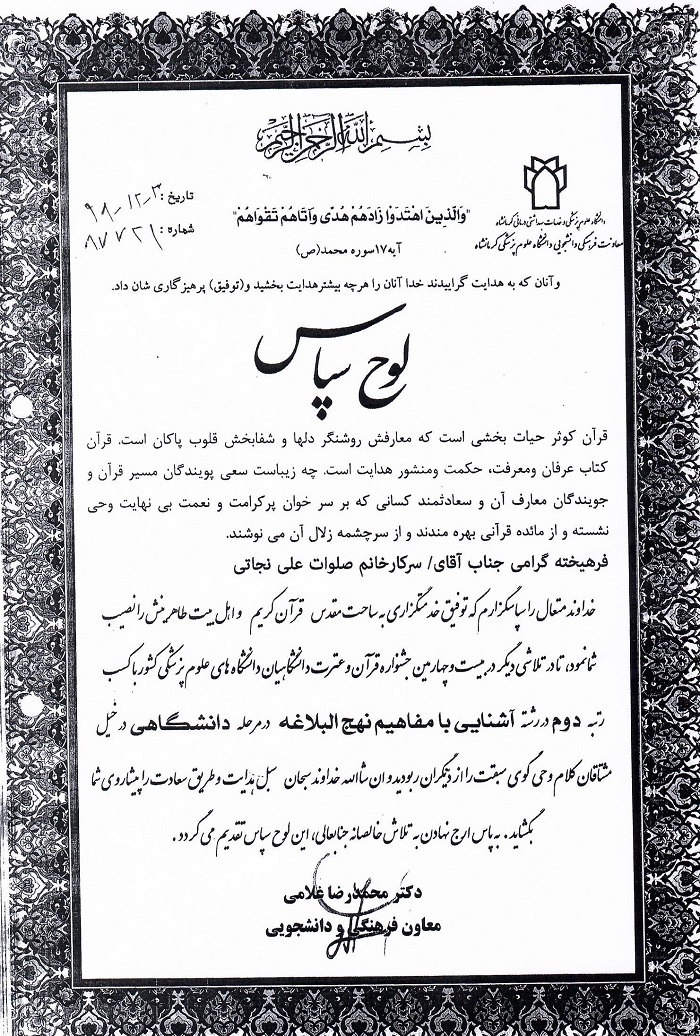 بسم الله الرحمن الرحیم
دانشگاه علوم پزشکی و خدمات بهداشتی درمانی کرمانشاه
معاونت فرهنگی دانشجویی دانشگاه علوم پزشکی کرمانشاه
تاریخ: ۹۸-۱۲-۳
شماره: ۸۷۷۲۱
"وَالَّذِینَ اهْتَدَوْا زَادَهُمْ هُدًی وَآتَاهُمْ تَقْوَاهُمْ"
آیه۱۷سوره محمد(ص)
وآنان که به هدایت گراییدند خدا آنان را هرچه بیشترهدایت بخشید و(توفیق) پرهیزگاری شان داد.
لوح سپاس
قرآن کوثر حیات بخشی است که معارفش روشنگر دلها و شفابخش قلوب پاکان است. قرآن
کتاب عرفان ومعرفت، حکمت ومنشور هدایت است. چه زیباست سعی پویندگان مسیر قرآن و
جویندگان معارف آن و سعادثمند کسانی که بر سر خوان پرکرامت و نعمت بی نهایت وحی
نشسته و از مائده قرآنی بهره مندند و از سرچشمه زلال آن می نوشند.
فرهیخته گرامی جناب آقای/ سرکارخانم صلوات علی نجاتی
خداوند متعال را سپاسگزارم که توفیق خدمتگزاری به ساحت مقدس قرآن کریم و اهل بیت طاهرینش را نصیب
شما نمود، تا در تلاشی دیگر در بیست و چهارمین جشنواره قرآن و عترت دانشگاهیان دانشگاه های علوم پزشکی کشور با کسب
رتبه دوم در رشته آشنایی با مفاهیم نهج البلاغه در مرحله دانشگاهی در خیل
مشتاقان کلام وحی گوی سبقت را از دیگران ربودید و ان شاالله خداوند سبحان سبل هدایت و طریق سعادت را پیشاروی شما
بگشاید. به پاس ارج نهادن به تلاش خالصانه جنابعالی، این لوح سپاس تقدیم می گردد.
دکتر محمدرضا غلامی
معاون فرهنگی و دانشجویی